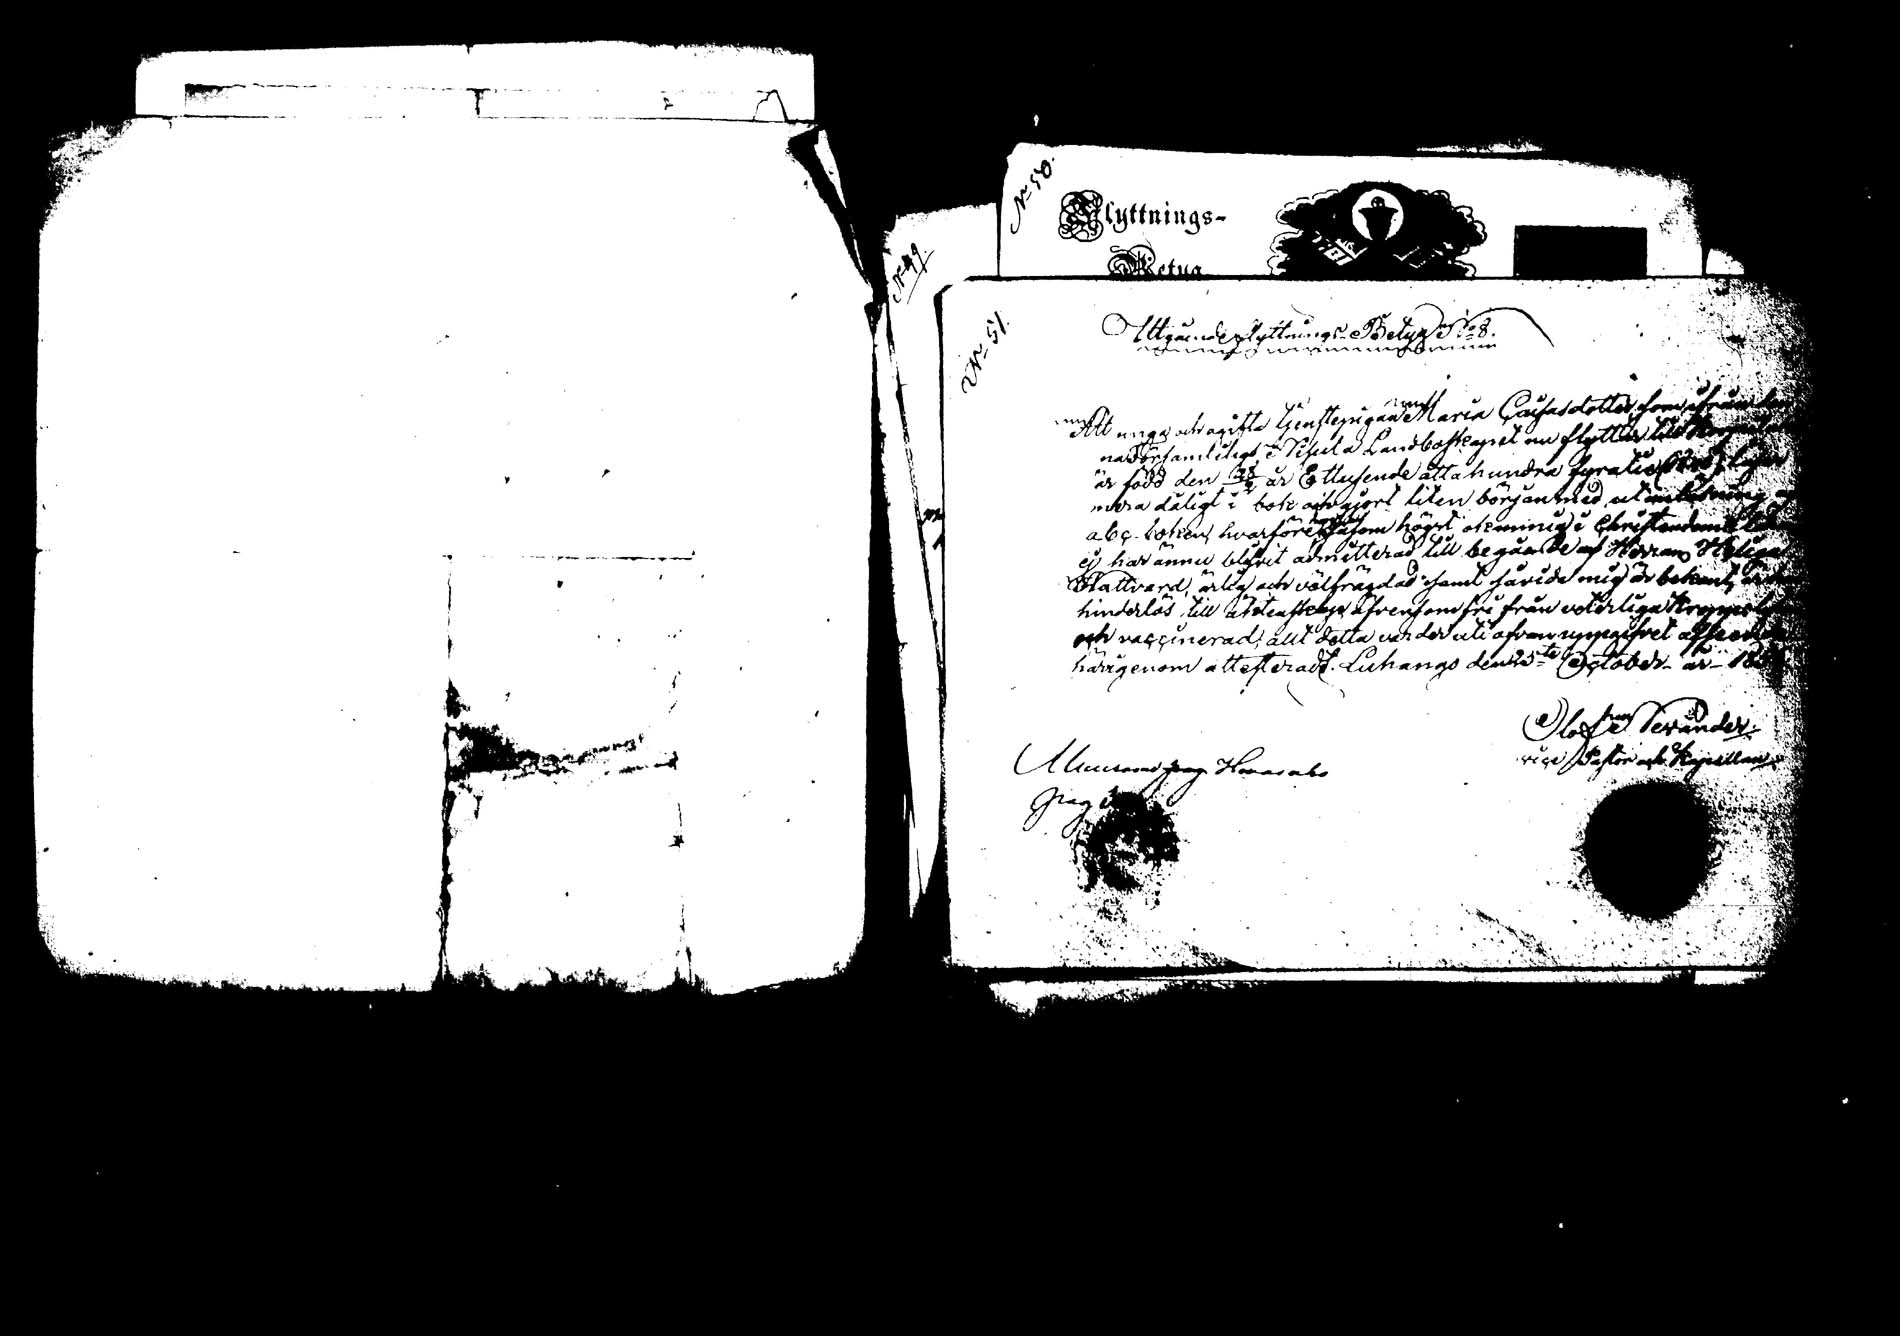 No 50.
Flyttnings-
Betyg
No 49.
No 51.
Utgående flyttnings-Betyg No 8.
Att unga och ogifta tjenstepigan Maria Cajsasdotter, som ifrån
na Församling, i Sisula Landbo flyttar till
är född den 28/2 år Ettusende åttahundra fyratio
mera dåligt i bok och gjort liten början med utanläsning
abc-boken, hvarföre såsom högst okunnig i Christendoms
ej har ännu blifvit admitterad till begående af Herrans Heliga
Nattvard, ärlig och välfrägdad samt såvida mig är bekant,
hinderlös till äktenskap, äfvensom fri från veterliga kropps
och vaccinerad, allt detta varder uti ofvanuppgifvet afseende
härigenom attesteradt. Luhango den 25te October år 18
Olof
vice Pastor och Kapellan